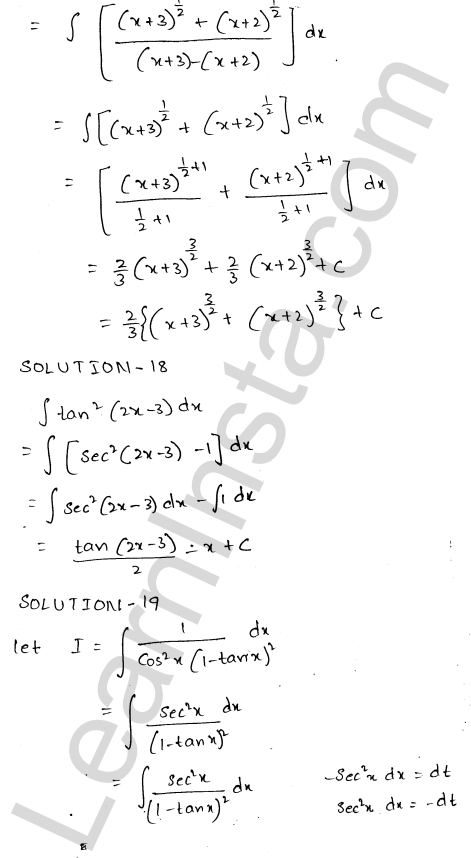 = ∫ [ ((x+3)^(1/2) + (x+2)^(1/2)) / ((x+3)-(x+2)) ] dx
= ∫[(x+3)^(1/2) + (x+2)^(1/2)] dx
= [ (x+3)^(1/2+1) / (1/2+1) + (x+2)^(1/2+1) / (1/2+1) ] dx
= 2/3 (x+3)^(3/2) + 2/3 (x+2)^(3/2) + C
= 2/3 {(x+3)^(3/2) + (x+2)^(3/2)} + C
SOLUTION-18
∫ tan² (2x-3) dx
= ∫ [sec²(2x-3) -1] dx
= ∫ sec² (2x-3) dx - ∫1 dx
= tan (2x-3) / 2 - x + C
SOLUTION-19
let I = ∫ 1 / (cos²x (1-tanx)²) dx
= ∫ sec²x / (1-tanx)² dx
= ∫ sec²x / (1-tanx)² dx -sec²x dx = dt
sec²x dx = -dt
LearnInsta.com